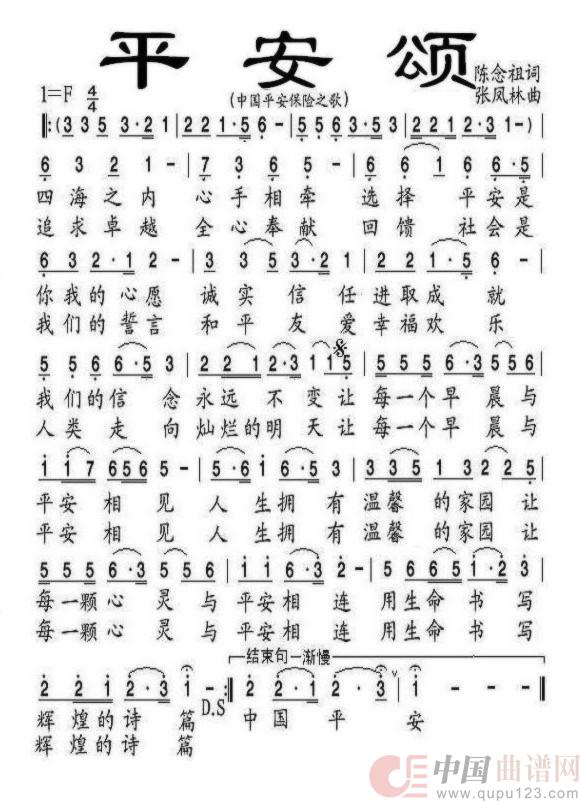 平安颂
陈念祖词
1=F 4/4 (中国平安保险之歌) 张凤林曲
‖:(3 3 5 3·2 1 | 2 2 1·5 6 - | 5·5 5 6 3·5 3 | 2·2 2 3 2 1 - ) |
6 3 2 1 - | 7 3 6 5 - | 6 6 1 6 6·5 |
四海之内 心手相牵 选择 平安是
追求卓越 全心奉献 回馈 社会是
6 3 2·1 2 - | 3 3 5·3 2 1 | 1 2 1·5
你我的心愿 诚实信任进取成就
我们的誓言 和平友爱幸福欢乐
5 5 6·5 3 | 2 2 1 2·3 1 1 5 | 5 5 5 6·3 5 5 6
我们的信念永远不变让每一个早晨与
人类走向灿烂的明天让每一个早晨与
1 1 7 6 5 6 5 - | 5·6 1 6·5 3 | 3 3 5 1 3 2 2 5 |
平安相见人生拥有温馨的家园让
平安相见人生拥有温馨的家园让
5 5 5 6·3 5 6 | 1 1 6·3 2 - | 5 6 6 5 1 2 3 |
每一颗心灵与平安相连用生命书写
每一颗心灵与平安相连用生命书写
结束句—渐慢
2 2 1 2·3 1 - :‖ 2 2 1 2·3 | 1 - - - ‖
D.S
辉煌的诗篇 中国平安
辉煌的诗篇
中国曲谱网
www.qupu123.com